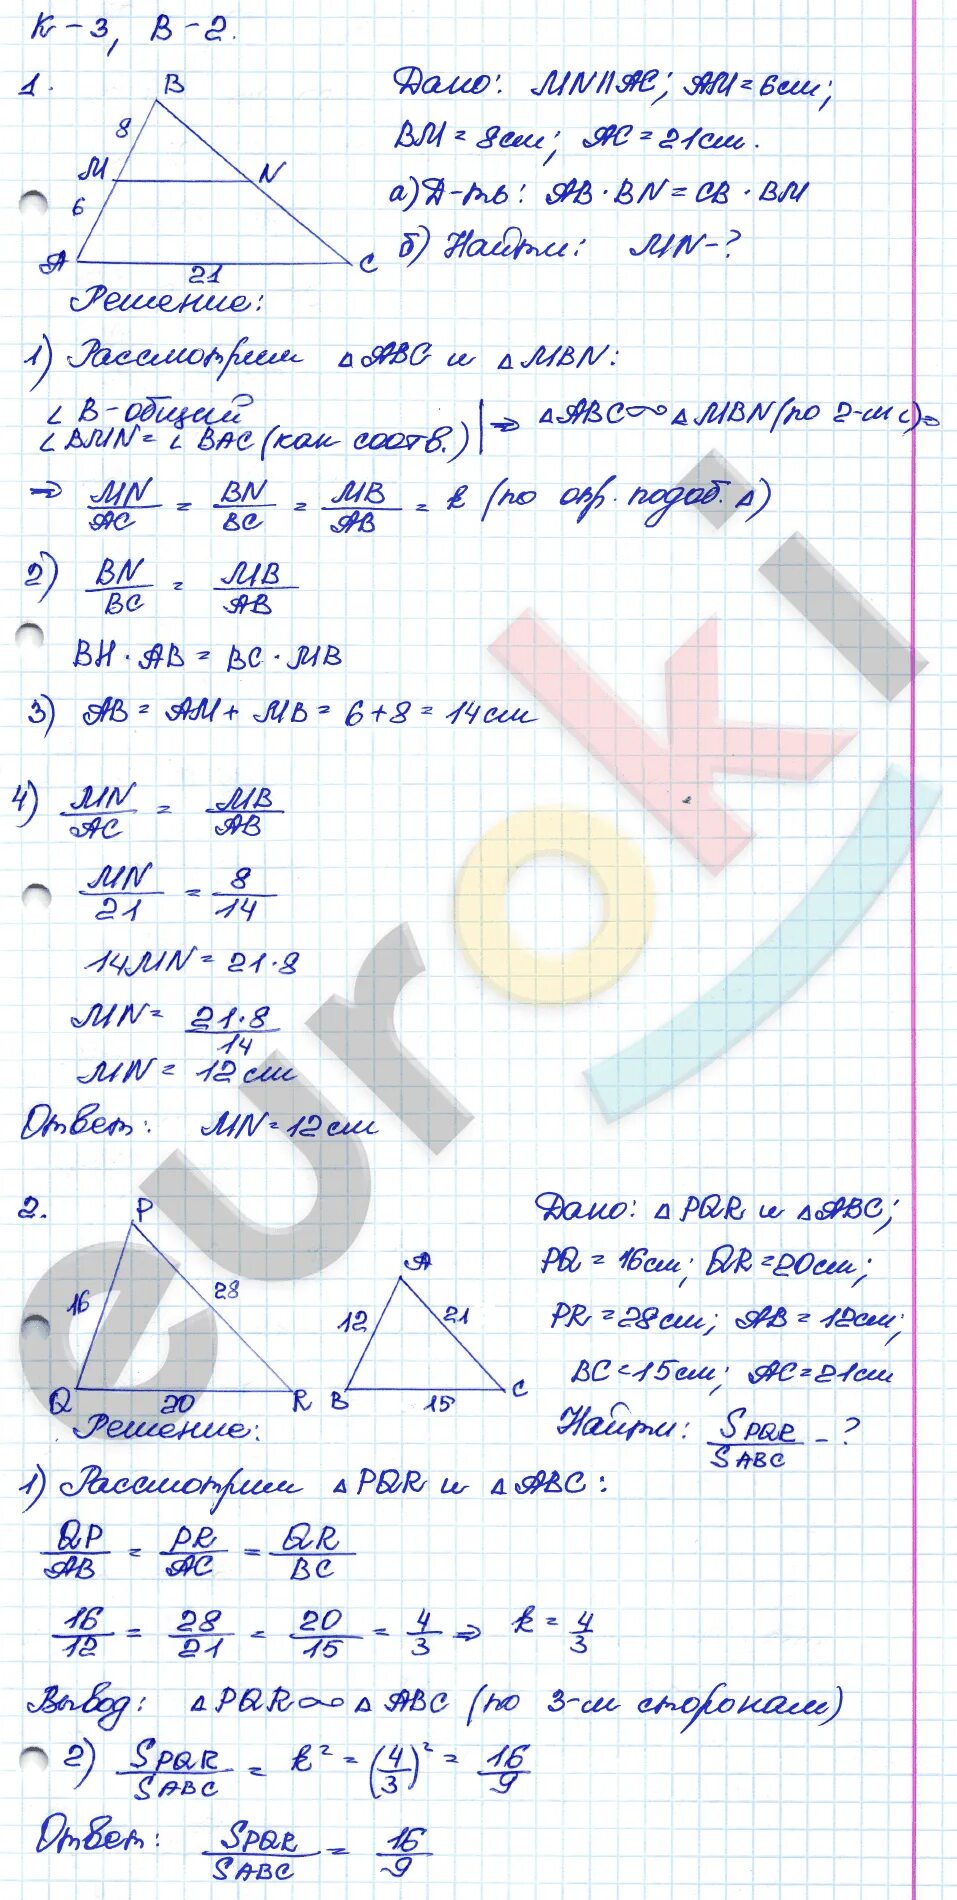 К-3, В-2.
1.
B
8
M
N
6
A
21
C
Дано: MN||AC; AM=6см;
BM=8см; AC=21см.
а) Д-ть: AB·BN=CB·BM
б) Найти: MN-?
Решение:
1) Рассмотрим △ABC и △MBN:
∠B-общий
∠BMN=∠BAC (как соотв.) | ⇒ △ABC∞△MBN (по 2-м ∠)⇒
⇒ MN/AC = BN/BC = MB/AB = k (по опр. подоб. △)
2) BN/BC = MB/AB
BH·AB=BC·MB
3) AB=AM+MB=6+8=14см
4) MN/AC = MB/AB
MN/21 = 8/14
14MN=21·8
MN= 21·8/14
MN=12см
Ответ: MN=12см
2.
P
16
28
Q
20
R
A
12
21
B
15
C
Дано: △PQR и △ABC;
PQ=16см; QR=20см;
PR=28см; AB=12см;
BC=15см; AC=21см
Найти: SPQR/SABC -?
Решение:
1) Рассмотрим △PQR и △ABC:
QP/AB = PR/AC = QR/BC
16/12 = 28/21 = 20/15 = 4/3 ⇒ k=4/3
Вывод: △PQR∞△ABC (по 3-м сторонам)
2) SPQR/SABC = k² = (4/3)² = 16/9
Ответ: SPQR/SABC = 16/9
euroki